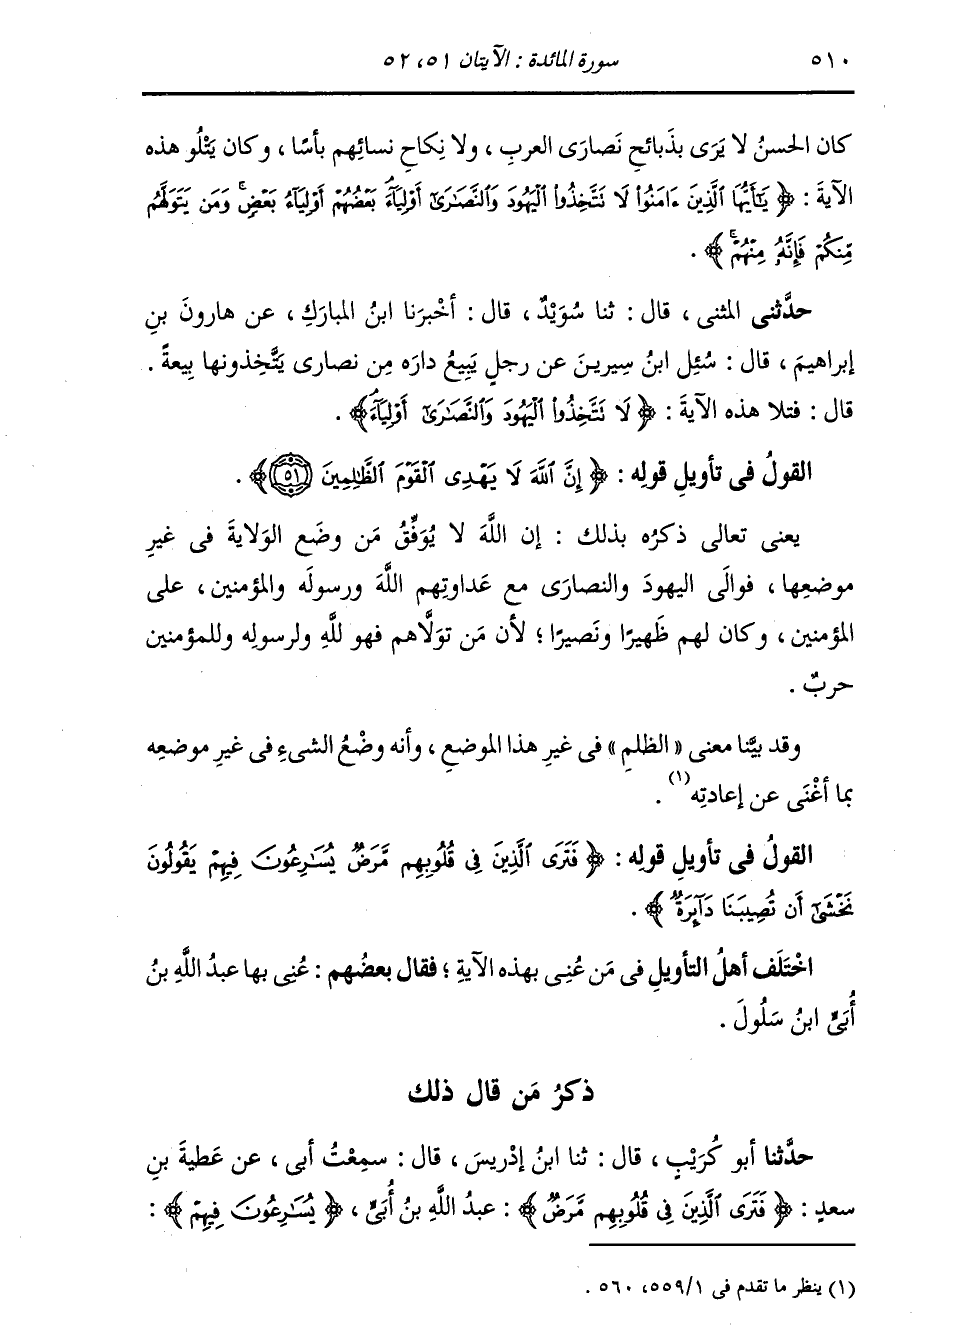 ٥١٠ سورة المائدة : الآيتان ٥١، ٥٢
كان الحسنُ لا يَرَى بذَبائحِ نَصارَى العربِ ، ولا نِكاحِ نسائِهم بأسًا ، وكان يَتْلُو هذه
الآيةَ : ﴿ يَٰٓأَيُّهَا ٱلَّذِينَ ءَامَنُوا۟ لَا تَتَّخِذُوا۟ ٱلْيَهُودَ وَٱلنَّصَٰرَىٰٓ أَوْلِيَآءَۘ بَعْضُهُمْ أَوْلِيَآءُ بَعْضٍۚ وَمَن يَتَوَلَّهُم
مِّنكُمْ فَإِنَّهُۥ مِنْهُمْۗ ﴾ .
حدَّثنى المثنى ، قال : ثنا سُوَيْدٌ ، قال : أخْبرَنا ابنُ المباركِ ، عن هارونَ بنِ
إبراهيمَ ، قال : سُئِل ابنُ سِيرينَ عن رجلٍ يَبِيعُ دارَه مِن نصارى يَتَّخِذونها بِيعةً .
قال : فتلا هذه الآيةَ : ﴿ لَا تَتَّخِذُوا۟ ٱلْيَهُودَ وَٱلنَّصَٰرَىٰٓ أَوْلِيَآءَۘ ﴾ .
القولُ فى تأويلِ قولِه : ﴿ إِنَّ ٱللَّهَ لَا يَهْدِى ٱلْقَوْمَ ٱلظَّٰلِمِينَ ٥١ ﴾ .
يعنى تعالى ذكرُه بذلك : إن اللَّهَ لا يُوَفِّقُ مَن وضَع الوَلايةَ فى غيرِ
موضعِها ، فوالَى اليهودَ والنصارَى مع عَداوتِهم اللَّهَ ورسولَه والمؤمنين ، على
المؤمنين ، وكان لهم ظَهيرًا ونَصيرًا ؛ لأن مَن تولَّاهم فهو للَّهِ ولرسولِه وللمؤمنين
حربٌ .
وقد بيَّنا معنى « الظلمِ » فى غيرِ هذا الموضعِ ، وأنه وضْعُ الشىءِ فى غيرِ موضعِه
بما أغْنَى عن إعادتِه(١) .
القولُ فى تأويلِ قولِه : ﴿ فَتَرَى ٱلَّذِينَ فِى قُلُوبِهِم مَّرَضٌ يُسَٰرِعُونَ فِيهِمْ يَقُولُونَ
نَخْشَىٰٓ أَن تُصِيبَنَا دَآئِرَةٌۚ ﴾ .
اخْتَلَف أهلُ التأويلِ فى مَن عُنِى بهذه الآيةِ ؛ فقال بعضُهم : عُنِى بها عبدُ اللَّهِ بنُ
أُبَىٍّ ابنُ سَلُولَ .
ذكرُ مَن قال ذلك
حدَّثنا أبو كُرَيْبٍ ، قال : ثنا ابنُ إدْريسَ ، قال : سمِعْتُ أبى ، عن عَطيةَ بنِ
سعدٍ : ﴿ فَتَرَى ٱلَّذِينَ فِى قُلُوبِهِم مَّرَضٌ ﴾ : عبدُ اللَّهِ بنُ أُبَىٍّ ، ﴿ يُسَٰرِعُونَ فِيهِمْ ﴾ :
(١) ينظر ما تقدم فى ٥٥٩/١، ٥٦٠ .